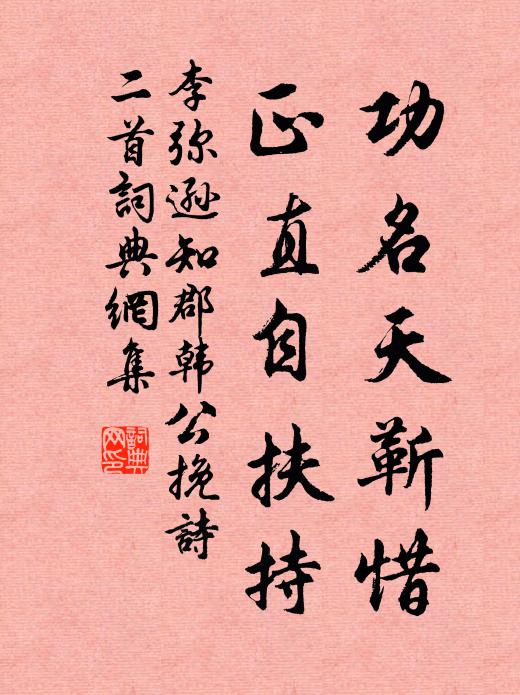 功名天靳惜
正直自扶持
李弥遜知郡韩公挽詩
二首詞典網集
詞典
网印